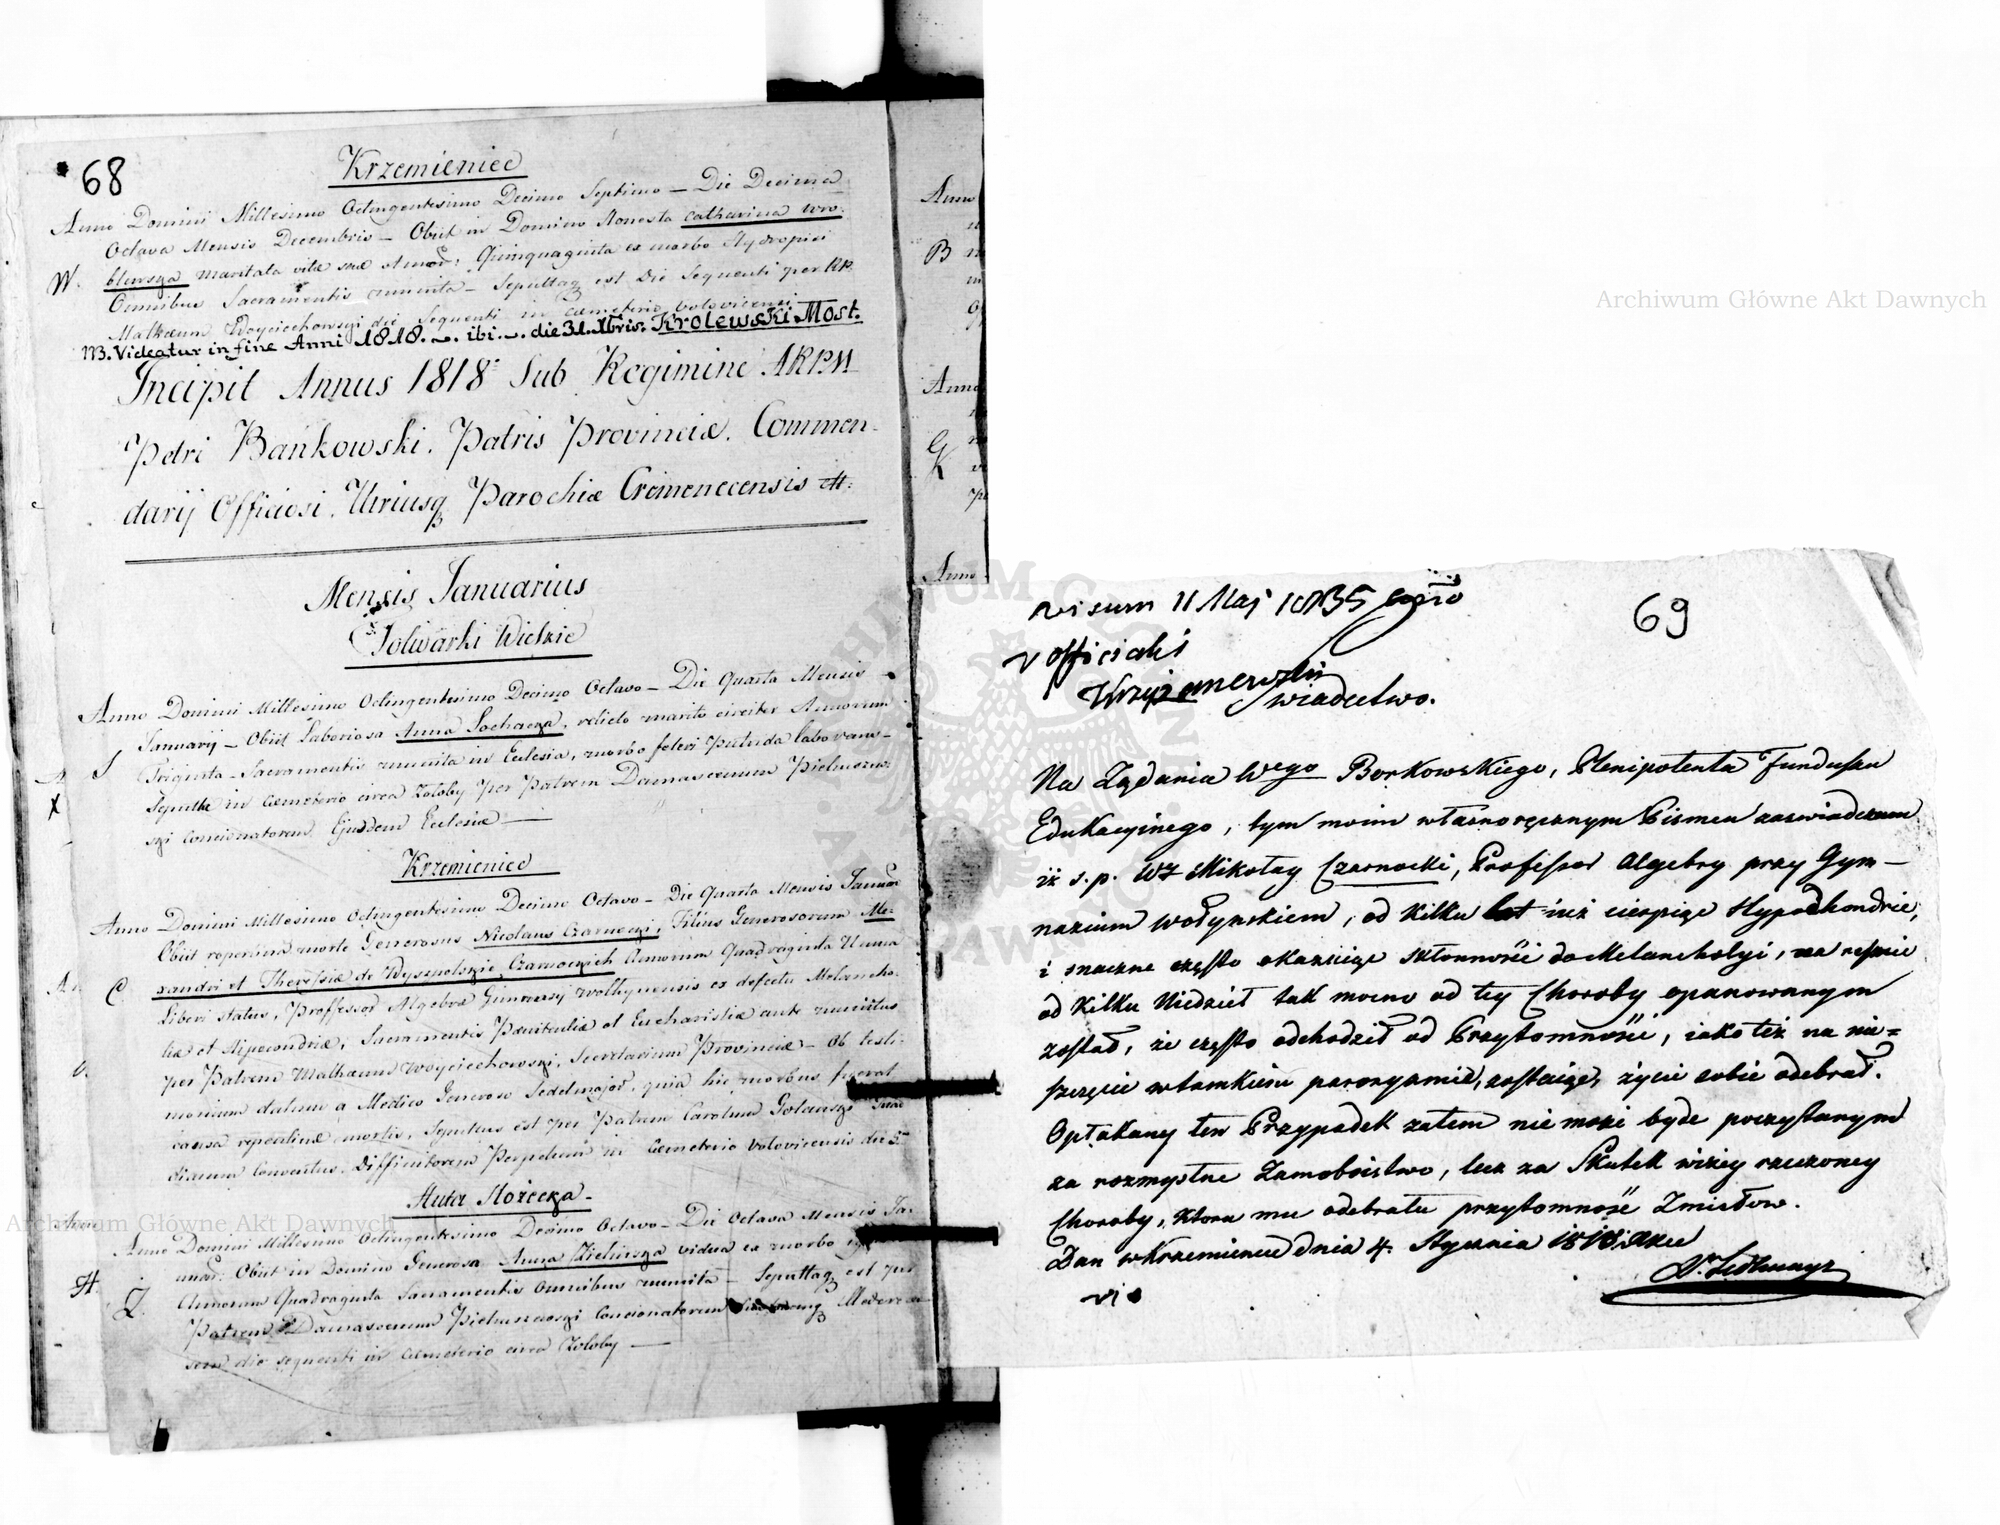 68
Krzemieniec
Anno Domini Millesimo Octingentesimo Decimo Septimo — Die Decima
Octava Mensis Decembris — Obiit in Domino Honesta Catharina Wro:
W. blewsga maritata vitæ suæ Quinquaginta ex morbo Hydropisi
Omnibus Sacramentis munita — est Die Sequenti per RP.
Malhæum Woyciechowsgi die Sequenti in Cæmeterio Volovicensi
NB. Videatur in fine Anni 1818. ibi die 31. Xbris. Krolewski Most.
Incipit Annus 1818 Sub Regimine ARPM
Petri Bańkowski. Patris Provinciæ. Commen-
darij Officiosi. Utriusq Parochiæ Cremenecensis
Mensis Januarius
Folwarki Wielkie
Anno Domini Millesimo Octingentesimo Decimo Octavo — Die Quarta Mensis
S Januarij — Obiit Laboriosa Anna Sochacga, relicto marito circiter Annorum
Triginta — Sacramentis munita in Ecclesia, morbo febri Putrida laborans —
X in Cæmeterio circa Zoloby per Patrem Damascenum
sgi Concionatorem Ejusdem Ecclesiæ —
Krzemieniec
Anno Domini Millesimo Octingentesimo Decimo Octavo — Die Quarta Mensis
Obiit repentina morte Generosus Nicolaus Czarnecgi, Filius Generosorum
C. xandri et Theressiæ de Czarnocgich Annorum Quadraginta Unum
Liberi status, Proffessor Algebræ Volhynensis ex defectu Melancho-
liæ et Hipocondriæ, Sacramentis Pœnitentiæ et Eucharistiæ ante munitus
per Patrem Malhæum Woyciechowsgi, Secretarium Provinciæ — Ob testi-
monium datum a Medico Generoso quia hic morbus fuerat
causa repentinæ mortis, Sepultus est per Patrem Carolum
dianum Conventus, Diffinitorem Perpetuum in Cæmeterio Volovicensis die
Huta Stożecga
Anno Domini Millesimo Octingentesimo Decimo Octavo — Die Octava Mensis Ja-
H. Obiit in Domino Generosa Anna Zielinsga vidua ex morbo
Z. Annorum Quadraginta Sacramentis Omnibus munita — est per
Patrem Damascenum Concionatorem
die sequenti in Cæmeterio circa Zoloby —
Anno
B
Anno
G
K
Anno
visum 11 Maj 1835
69
v officiali
Krzyżanewski
Swiadectwo.
Na Żądania Wego Borkowskiego, Plenipotenta Funduszu
Edukacyinego, tym moim własnoręcznym Pismem zaswiadczam
iż s. p. WJ Mikołay Czarnocki, Professor Algebry przy Gym-
nazium Wołyńskiem, od Kilku lat iuż cierpiąc Hypochondrie,
i znaczne często okazuiąc skłonność do Melancholyi, na
od Kilku Niedziel tak mocno od tey Choroby opanowanym
został, że często odchodził od Przytomności, iako też na nie=
szczęcie w tamkim paroxyzmie, zostaiąc, życie sobie odebrał.
Opłakany ten Przypadek zatem nie może bydz poczytanym
za rozmyslne Zamobóistwo, lecz za Skutek wiżey rzeczoney
Choroby, Ktora mu odebrała przytomność Zmisłow.
Dan w Krzemieńcu dnia 4. Stycznia 1818. Roku
Archiwum Główne Akt Dawnych
Archiwum Główne Akt Dawnych
ARCHIWUM GŁÓWNE AKT DAWNYCH